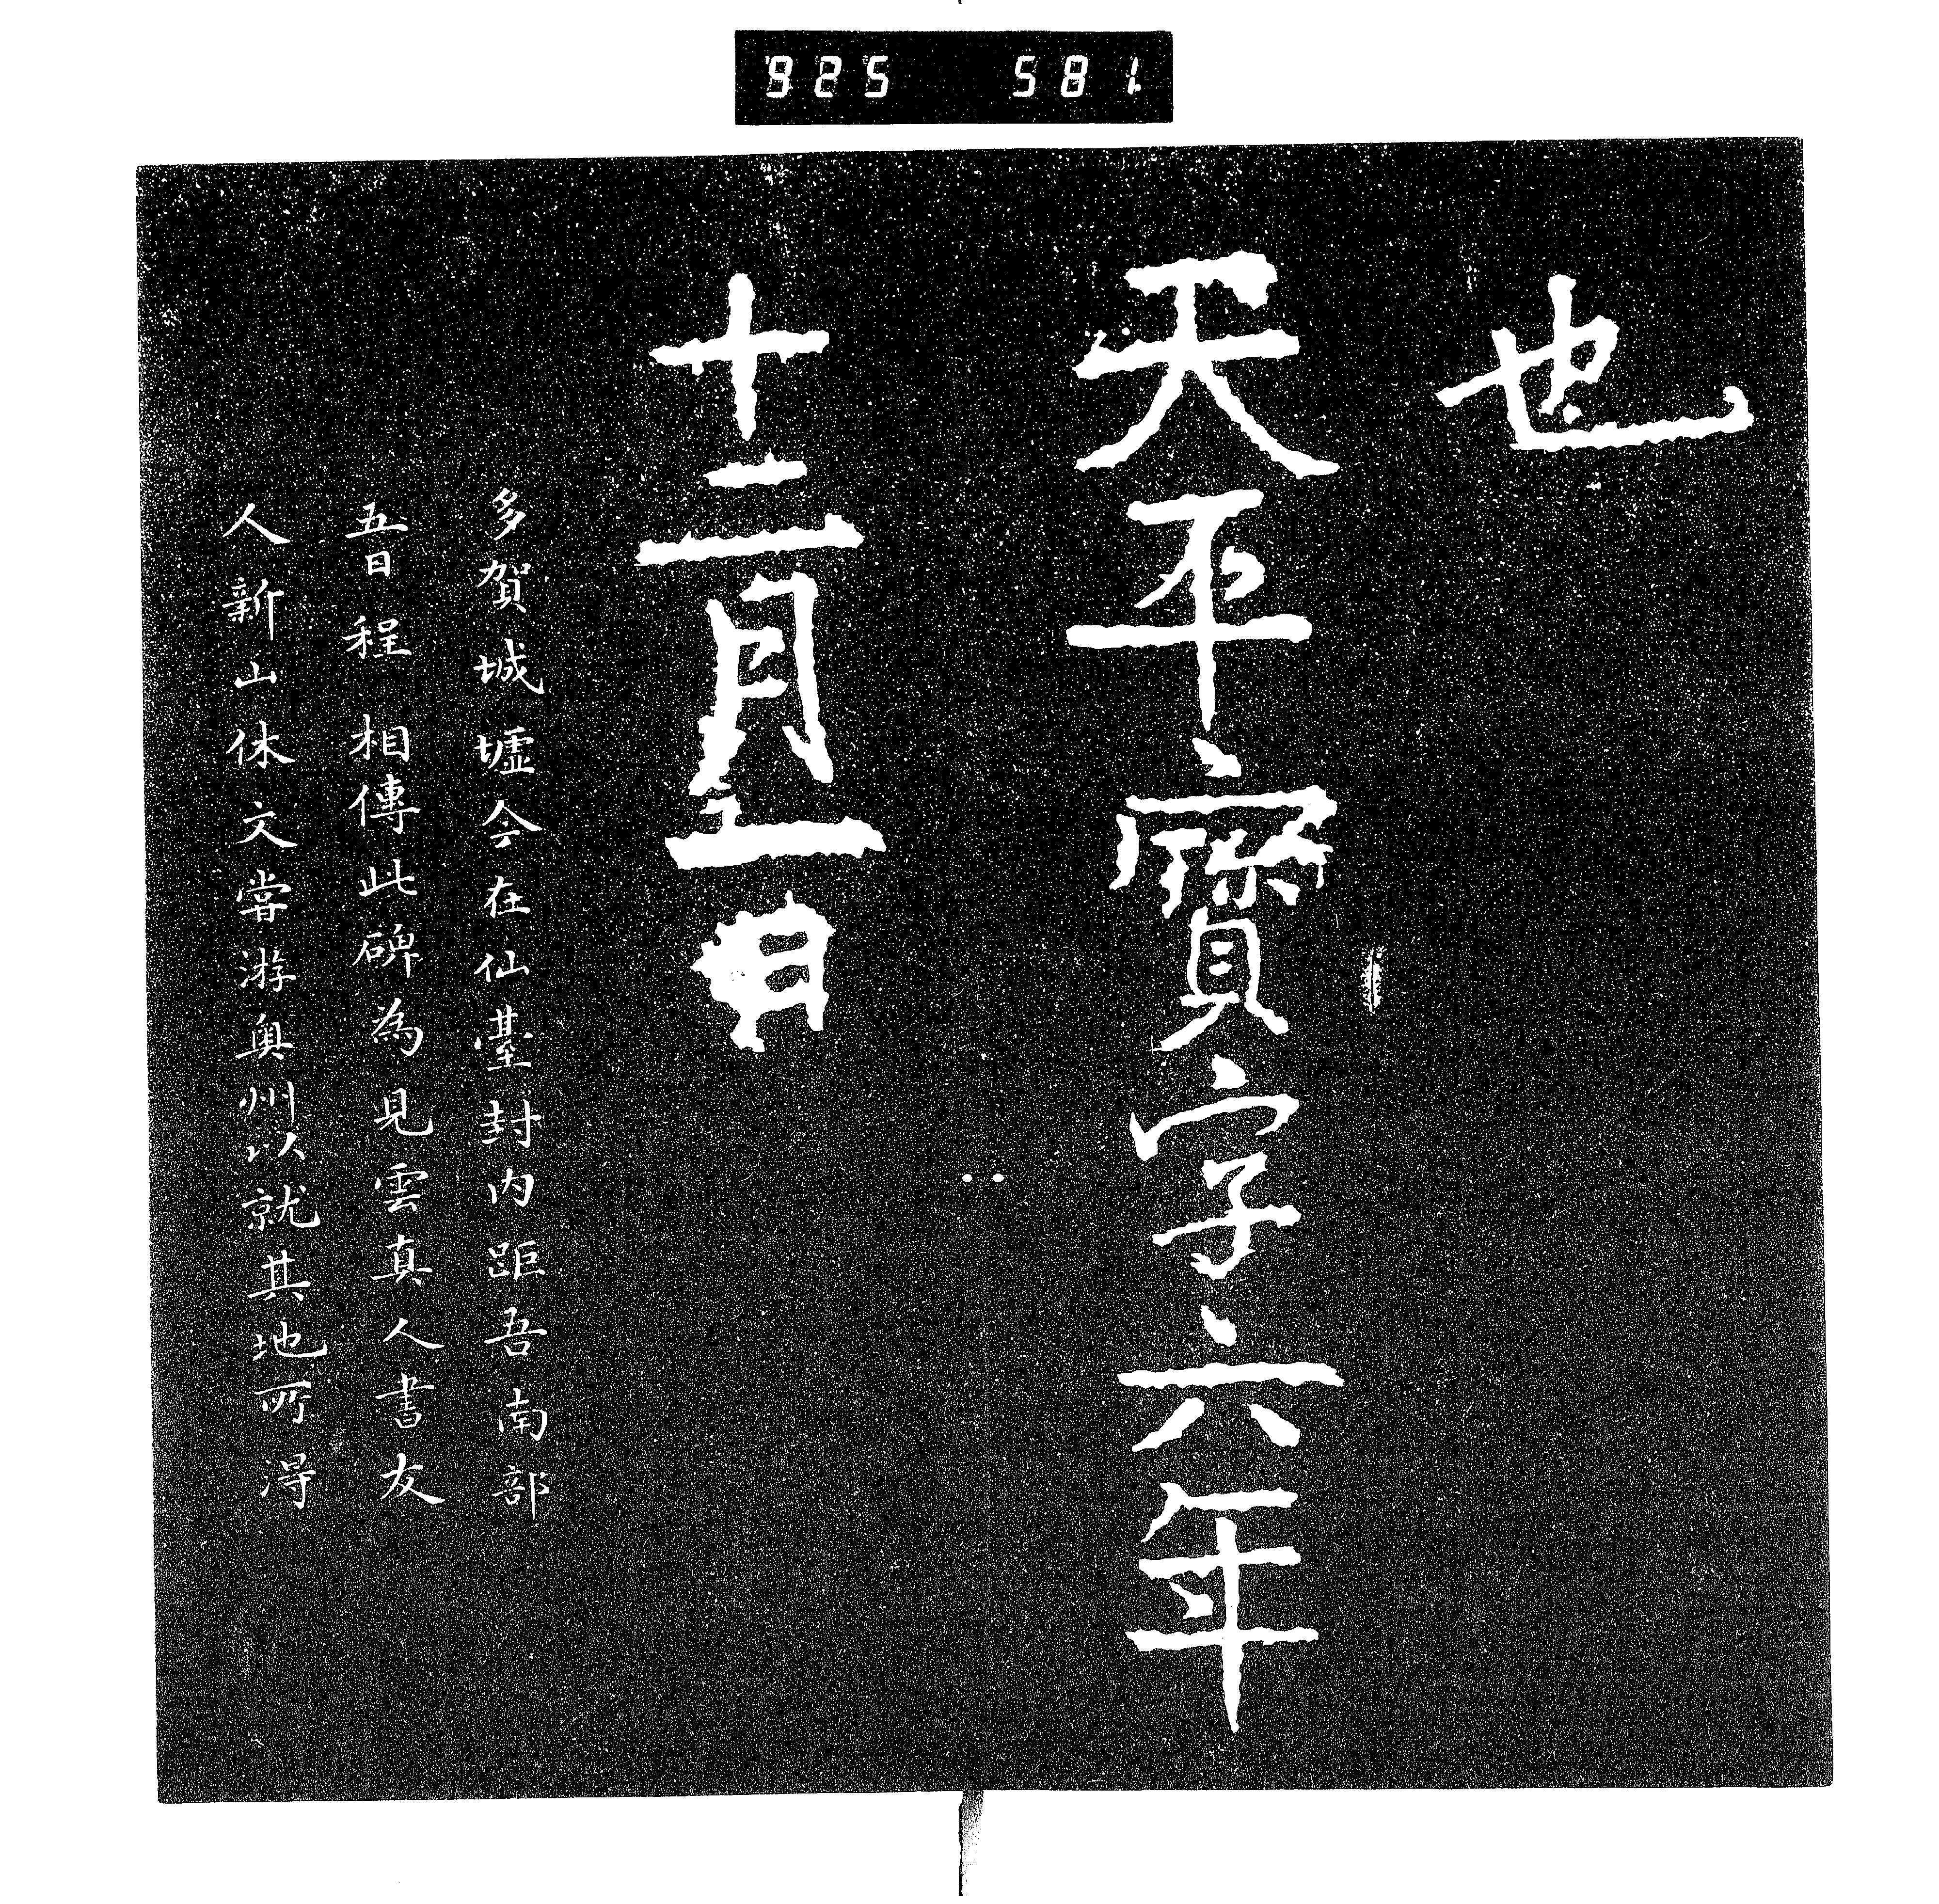 925 581
也
天平寶字六年
十二月一日
多賀城墟今在仙臺封内距吾南部
五日程相傳此碑為見雲真人書友
人新山休文嘗游奥州以就其地所得